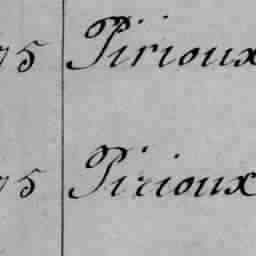 75 Pirioux
75 Pirioux